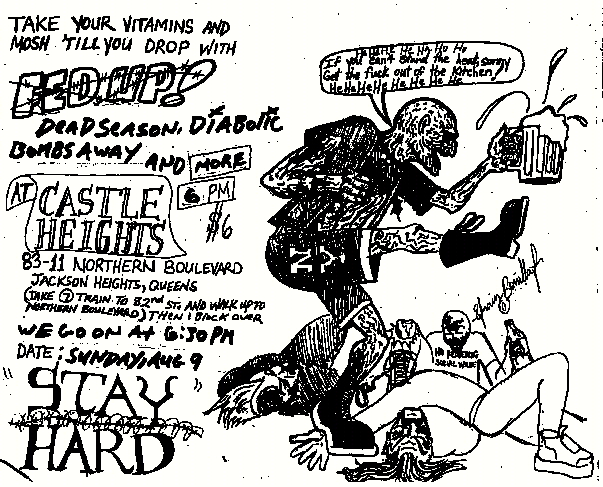 TAKE YOUR VITAMINS AND
MOSH 'TILL YOU DROP WITH
FED UP!
DEAD SEASON, DIABOLIC
BOMBS AWAY AND MORE
AT CASTLE
HEIGHTS
6 PM
$6
83-11 NORTHERN BOULEVARD
JACKSON HEIGHTS, QUEENS
(TAKE 7 TRAIN TO 82nd ST. AND WALK UP TO
NORTHERN BOULEVARD) THEN 1 BLOCK OVER
WE GO ON AT 6:30 PM
DATE: SUNDAY, AUG 9
"STAY
HARD"
He He He He Ho Ho
If you can't stand the heat
Get the fuck out of the Kitchen!
He He He He He He He
NY